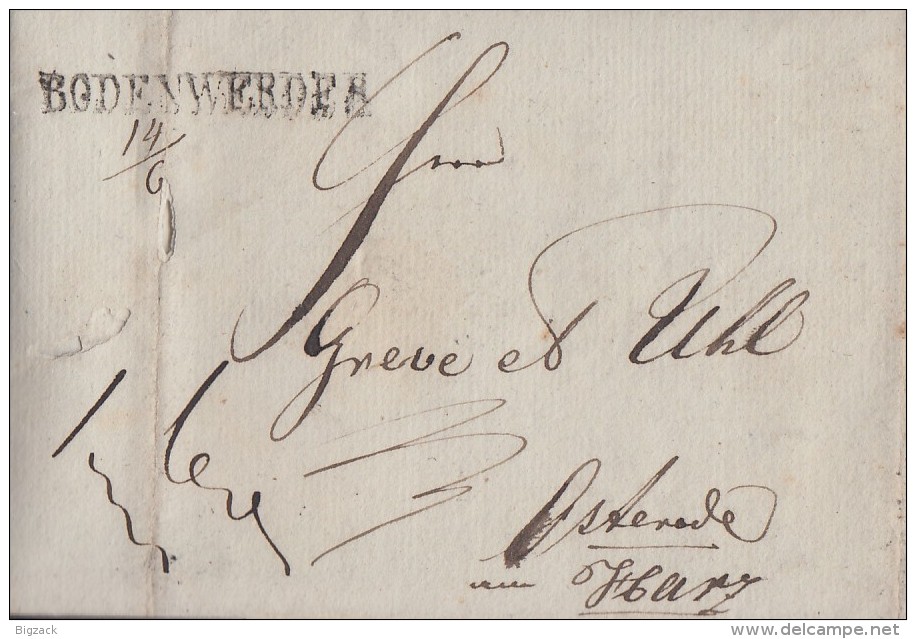 BODENWERDER
14/6
Herrn
Greve et Uhl
Osterode
am Harz
Bigzack
delcampe.net